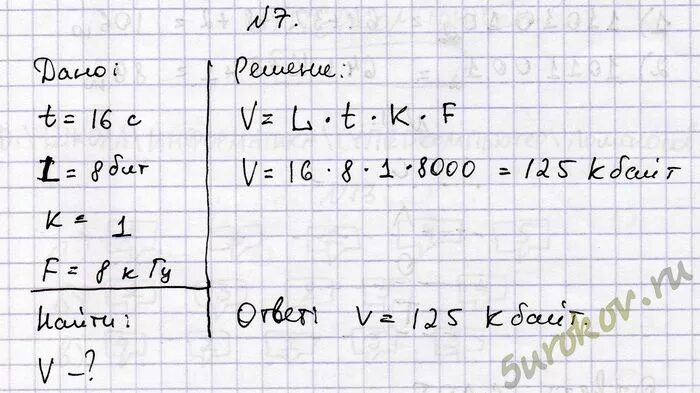 №7.
Дано:
t = 16 с
I = 8 бит
K = 1
F = 8 кГц
Найти:
V - ?
Решение:
V = L · t · K · F
V = 16 · 8 · 1 · 8000 = 125 Кбайт
Ответ: V = 125 Кбайт.
5urokov.ru